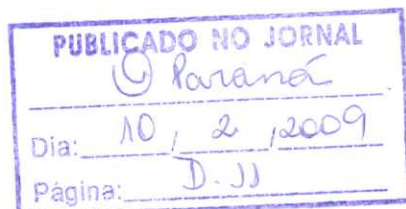 PUBLICADO NO JORNAL
O Paraná
Dia: 10 / 2 / 2009
Página: D. 11